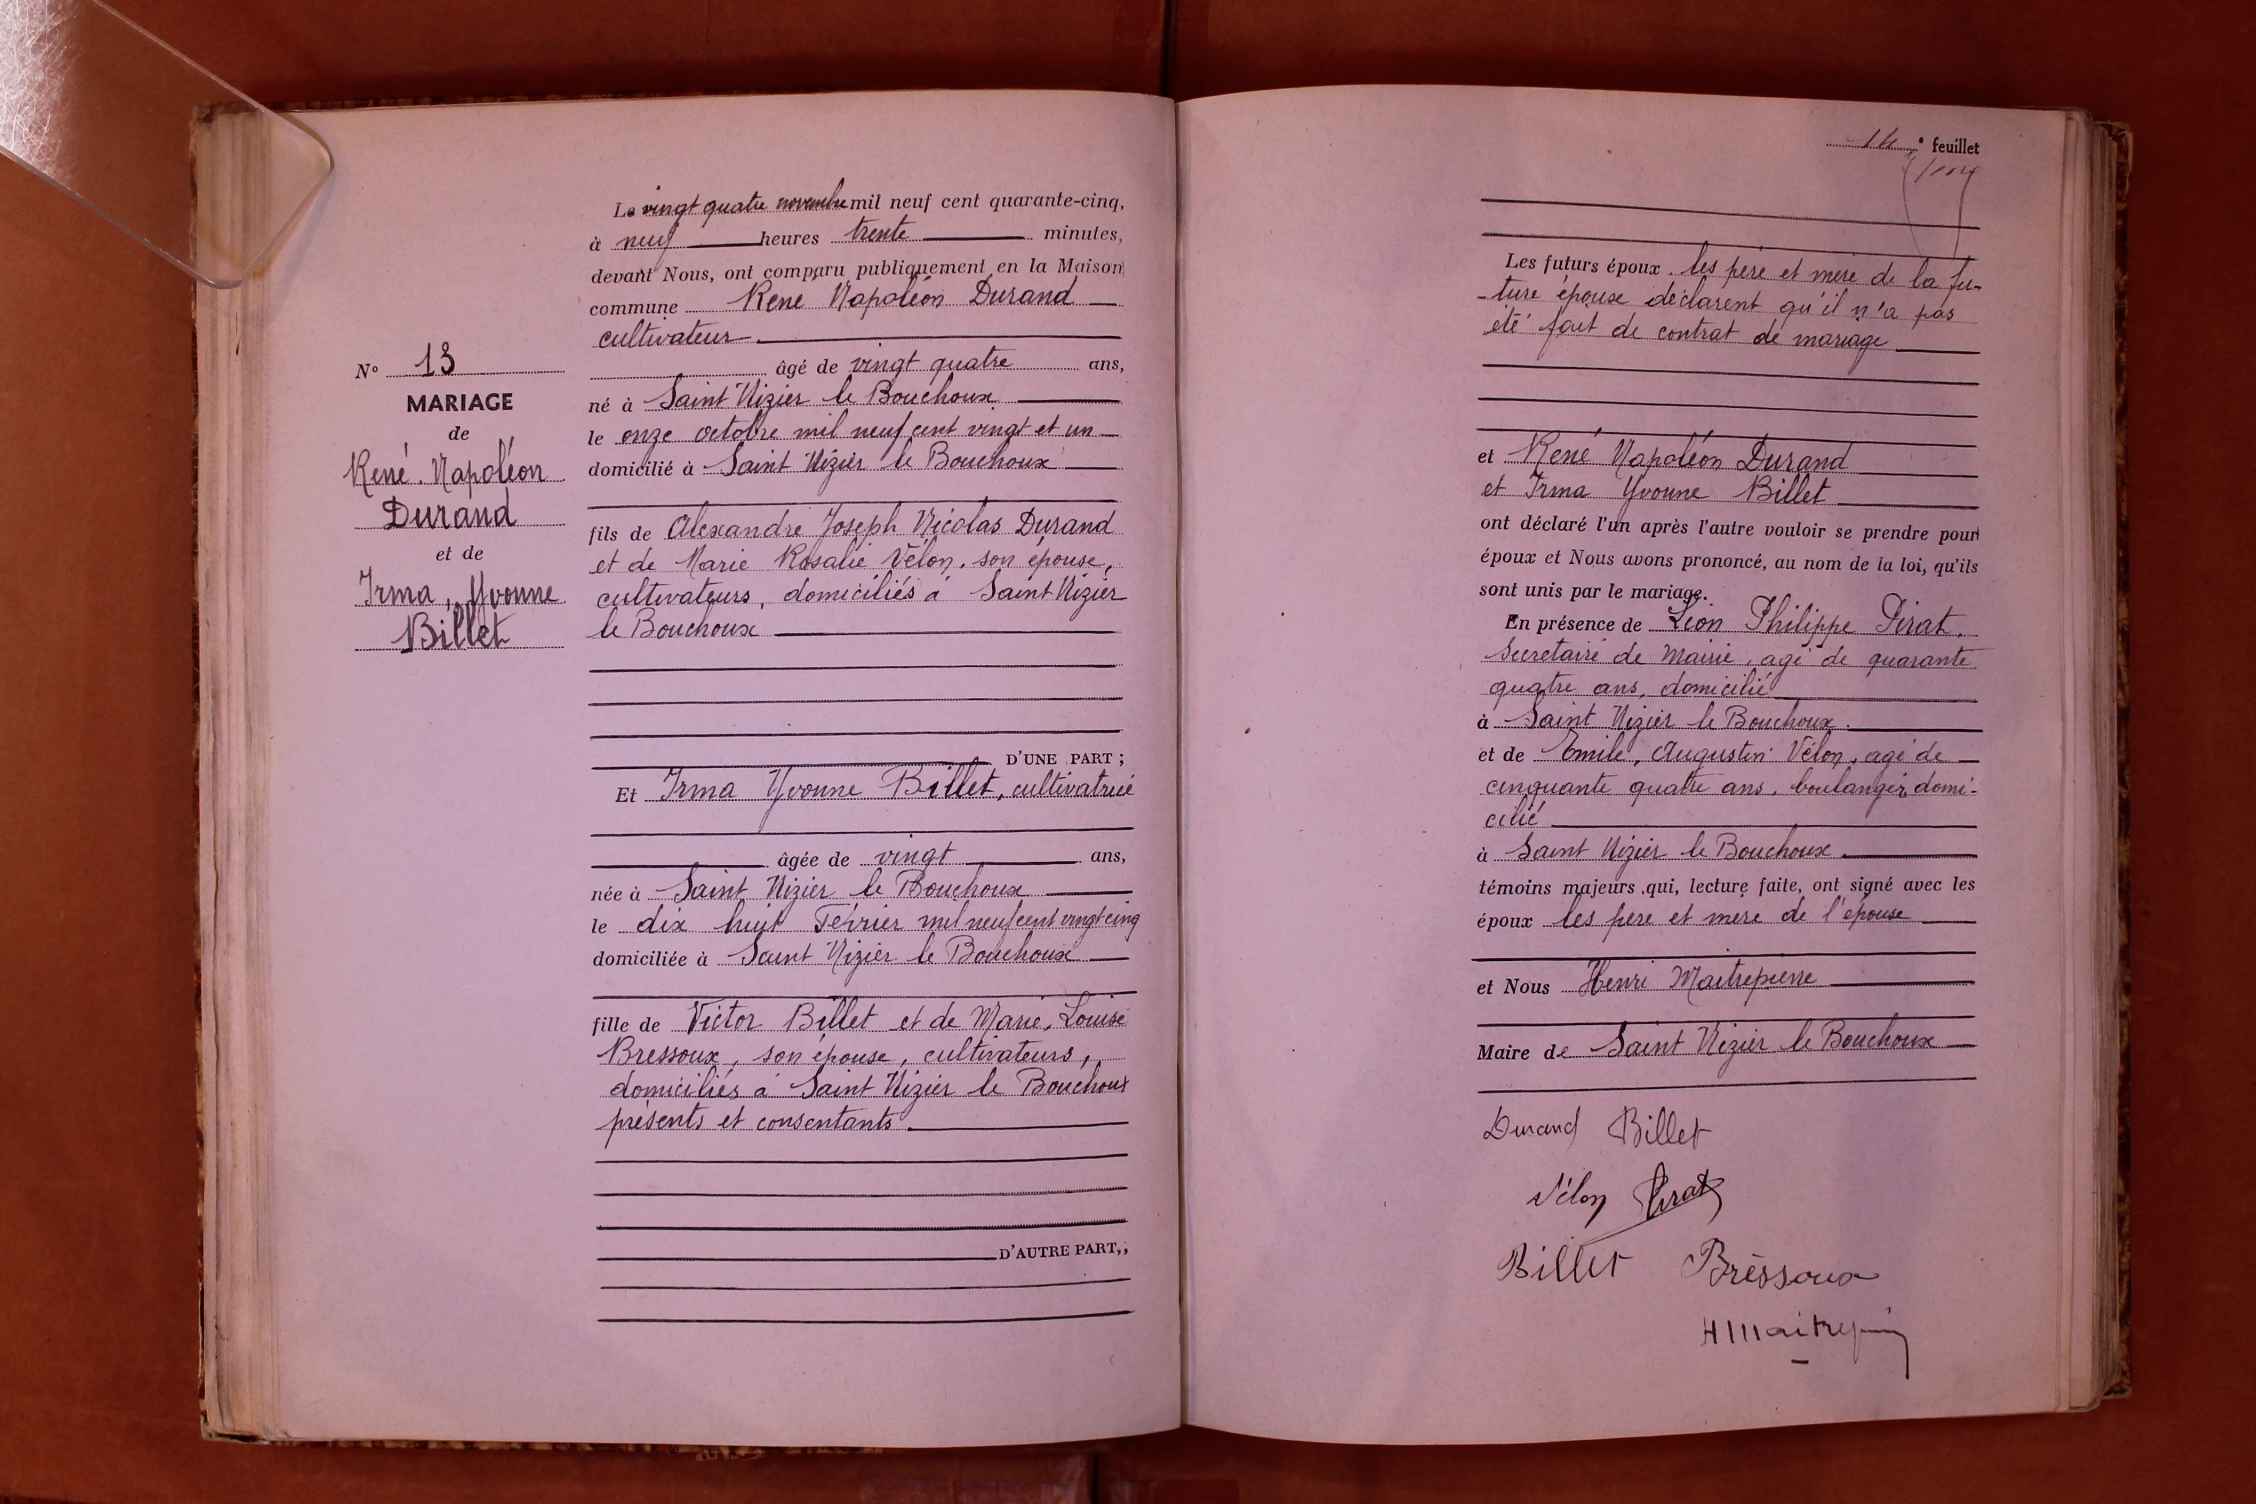 N° 13
MARIAGE
de
René Napoléon
Durand
et de
Irma, Yvonne
Billet
Le vingt quatre novembre mil neuf cent quarante-cinq,
à neuf heures trente minutes,
devant Nous, ont comparu publiquement en la Maison
commune René Napoléon Durand
cultivateur
âgé de vingt quatre ans,
né à Saint Nizier le Bouchoux
le onze octobre mil neuf cent vingt et un
domicilié à Saint Nizier le Bouchoux
fils de Alexandre Joseph Nicolas Durand
et de Marie Rosalie Vélon, son épouse,
cultivateurs, domiciliés à Saint Nizier
le Bouchoux
D'UNE PART ;
Et Irma Yvonne Billet, cultivatrice
âgée de vingt ans,
née à Saint Nizier le Bouchoux
le dix huit Février mil neuf cent vingt cinq
domiciliée à Saint Nizier le Bouchoux
fille de Victor Billet et de Marie, Louise
Bressoux, son épouse, cultivateurs,
domiciliés à Saint Nizier le Bouchoux
présents et consentants.
D'AUTRE PART,,
14 ° feuillet
Les futurs époux, les père et mère de la fu-
-ture épouse déclarent qu'il n'a pas
été fait de contrat de mariage
et René Napoléon Durand
et Irma Yvonne Billet
ont déclaré l'un après l'autre vouloir se prendre pour
époux et Nous avons prononcé, au nom de la loi, qu'ils
sont unis par le mariage.
En présence de Léon Philippe Pirat,
Secrétaire de Mairie, agé de quarante
quatre ans, domicilié
à Saint Nizier le Bouchoux.
et de Emile, Augustin Vélon, agé de
cinquante quatre ans, boulanger, domi-
cilié
à Saint Nizier le Bouchoux
témoins majeurs qui, lecture faite, ont signé avec les
époux les père et mère de l'épouse
et Nous Henri Maitrepierre
Maire de Saint Nizier le Bouchoux
Durand Billet
Vélon Pirat
Billet Bressoux